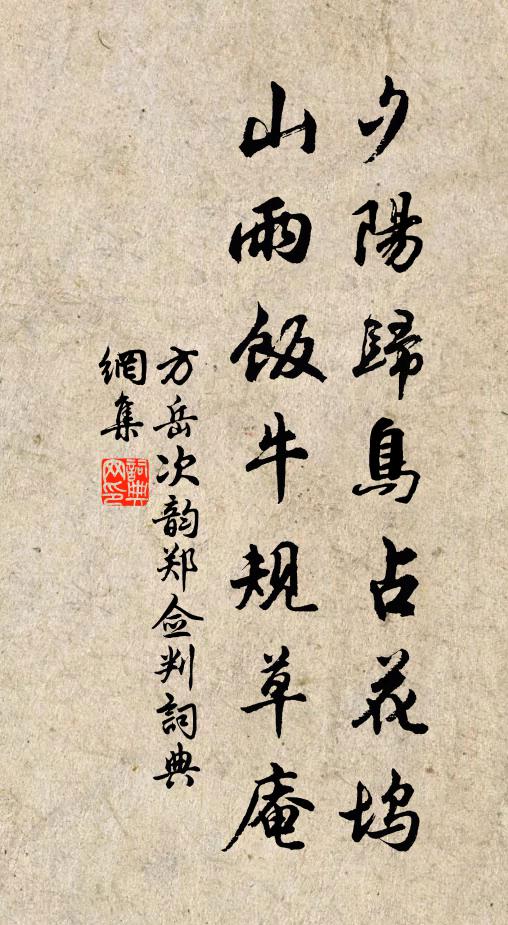 夕陽歸鳥占花塢
山雨飯牛規草庵
方岳次韵郑佥判詞典
網集
詞典
网印